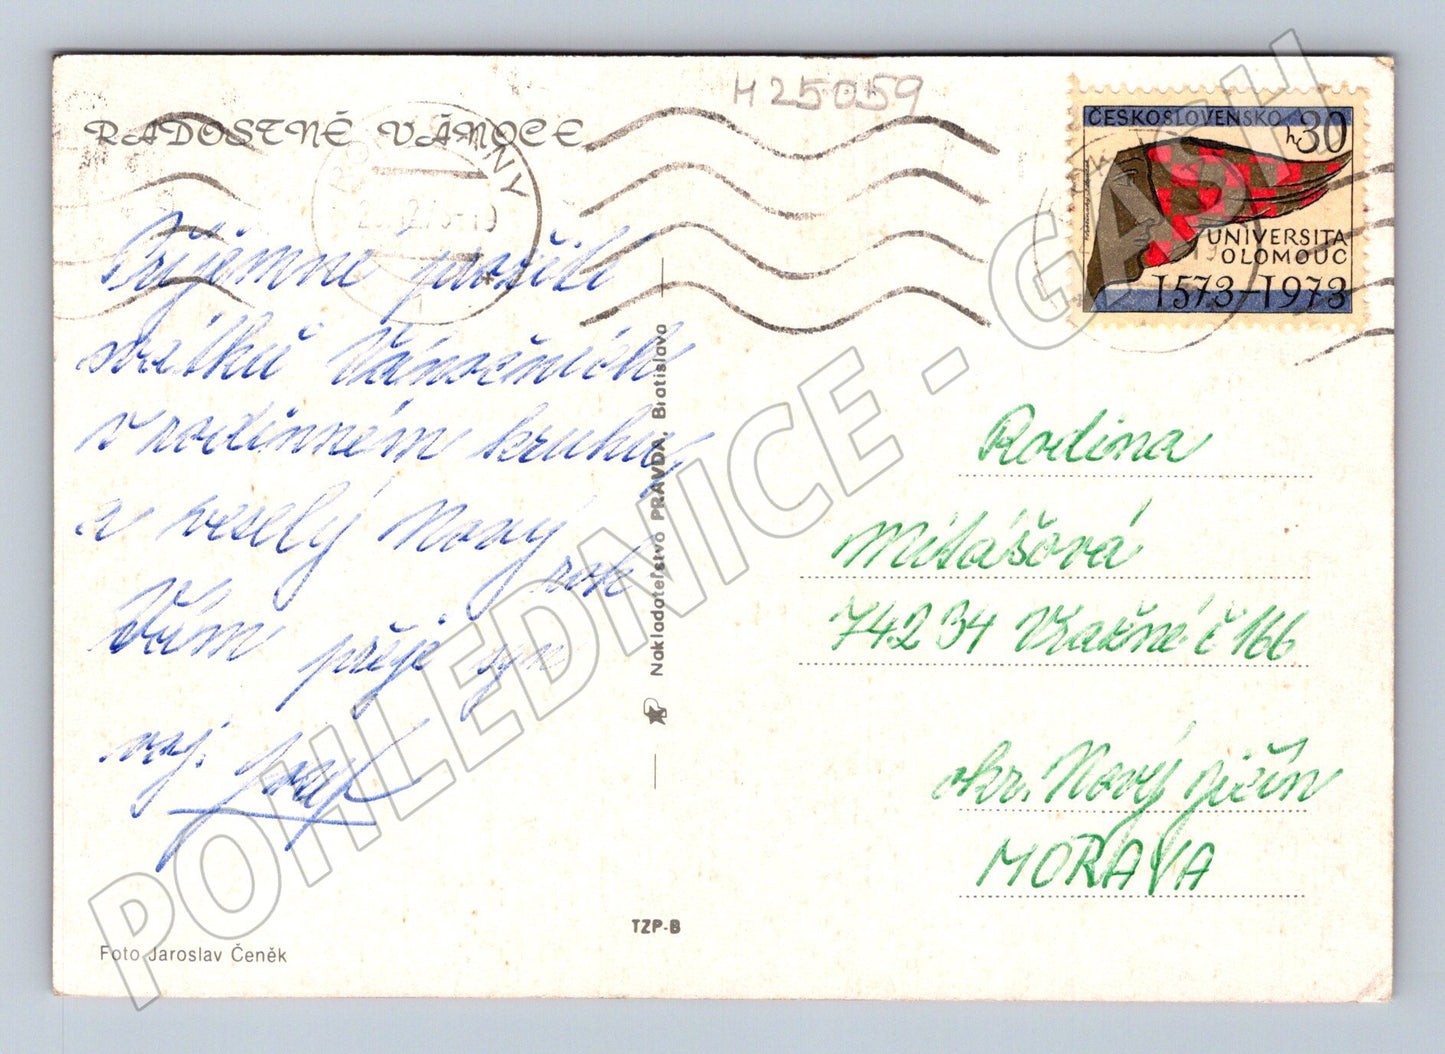 H25059
RADOSTNÉ VÁNOCE
ČESKOSLOVENSKO
h 30
UNIVERSITA
OLOMOUC
1573-1973
Příjemné prožití
svátků Vánočních
v rodinném kruhu
a veselý Nový
rok
Vám přeje syn
Foto Jaroslav Čeněk
Nakladateľstvo PRAVDA, Bratislava
TZP-B
Rodina
Mitášová
742 34 Vražné č 166
okr. Nový Jičín
MORAVA
POHLEDNICE - GASH